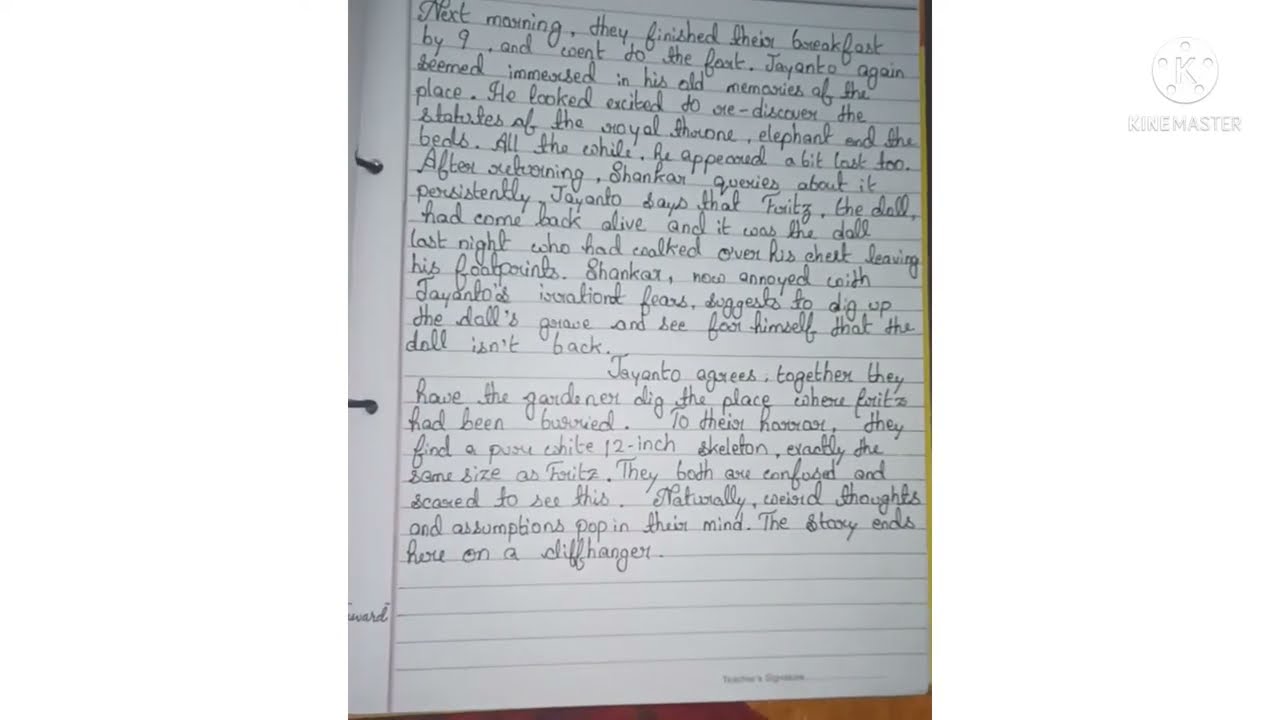 Next morning, they finished their breakfast
by 9, and went to the fort. Jayanto again
seemed immersed in his old memories of the
place. He looked excited to re-discover the
statutes of the royal throne, elephant and the
beds. All the while, he appeared a bit lost too.
After returning, Shankar queries about it
persistently, Jayanto says that Fritz, the doll,
had come back alive and it was the doll
last night who had walked over his chest leaving
his footprints. Shankar, now annoyed with
Jayanto's irrational fears, suggests to dig up
the doll's grave and see for himself that the
doll isn't back.
Jayanto agrees, together they
have the gardener dig the place where fritz
had been burried. To their horror, they
find a pure white 12-inch skeleton, exactly the
same size as Fritz. They both are confused and
scared to see this. Naturally, weird thoughts
and assumptions pop in their mind. The story ends
here on a cliffhanger.
ward
Teacher's Signature
KINEMASTER